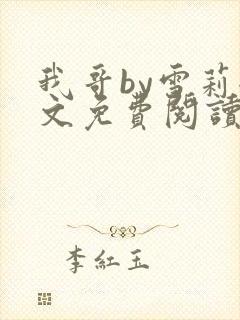 我哥by雪莉
文免費閱讀
李紅玉